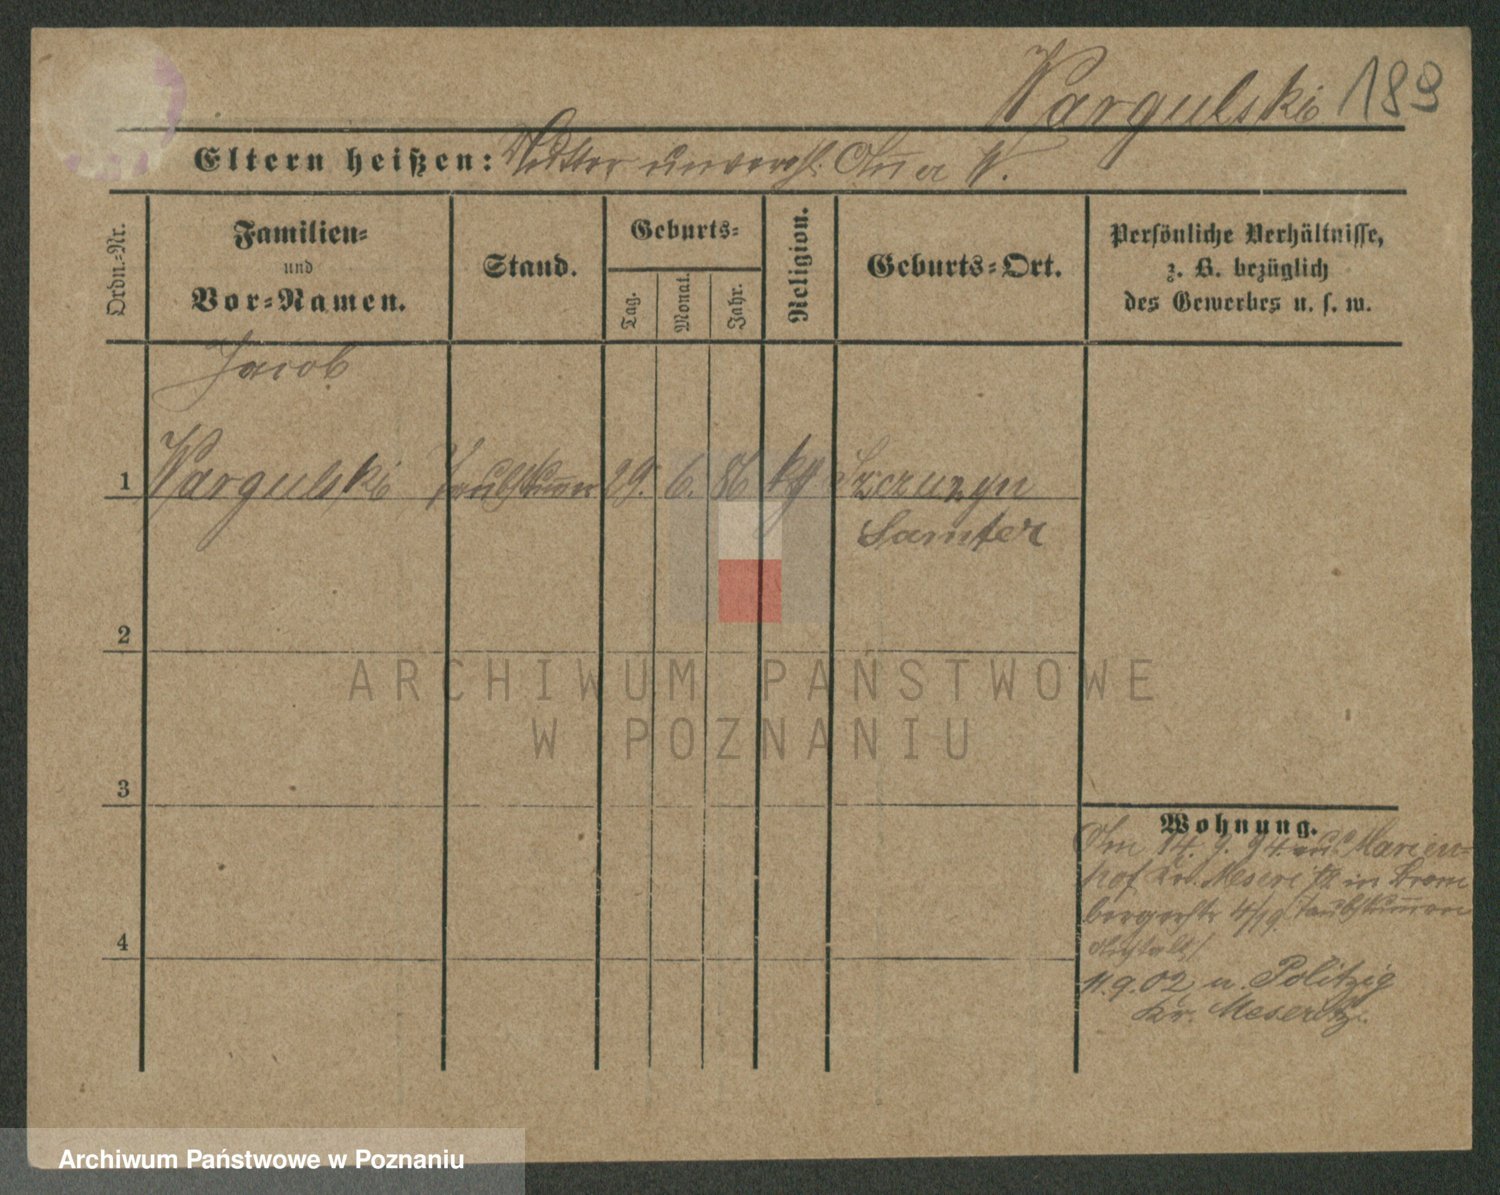 Wargulski 189
Eltern heißen: Mutter unverehl. Anna W.
Ordn.-Nr.
Familien-
und
Vor-Namen.
Stand.
Geburts-
Tag.
Monat.
Jahr.
Religion.
Geburts-Ort.
Persönliche Verhältnisse,
z. B. bezüglich
des Gewerbes u. s. w.
Jacob
1 Wargulski Taubstumm 29. 6. 86 kg Szczuzyn
Samter
2
3
4
Wohnung.
Am 14. 9. 94. aus Marien-
hof Kr. Meseritz in Brom
bergerstr 4/19. Taubstummen
Anstalt/
11.9.02 n. Politzig
Kr. Meseritz.
ARCHIWUM PAŃSTWOWE
W POZNANIU
Archiwum Państwowe w Poznaniu